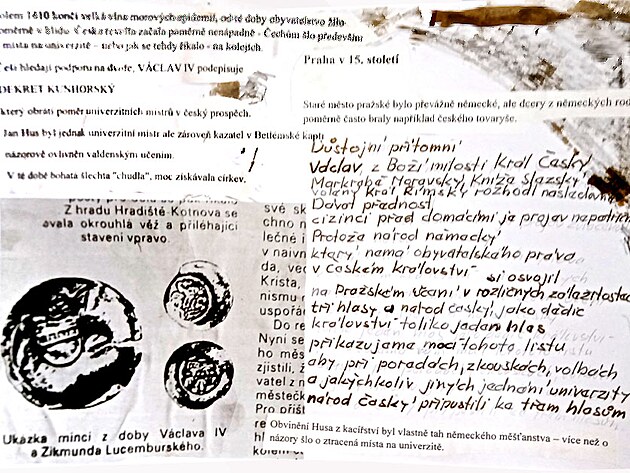 kolem 1410 končí velká vlna morových epidemií, od té doby obyvatelstvo žilo
poměrně v klidu. Česká revolta začala poměrně nenápadně - Čechům šlo především
místa na univerzitě - nebo jak se tehdy říkalo - na kolejích.
Češi hledají podporu na dvoře, VÁCLAV IV podepisuje
DEKRET KUNHORSKÝ
který obrátí poměr univerzitních mistrů v český prospěch.
Jan Hus byl jednak univerzitní mistr ale zároveň kazatel v Betlémské kapli
názorově ovlivněn valdenským učením.
V té době bohatá šlechta "chudla", moc získávala církev.
Z hradu Hradiště-Kotnova se
ovala okrouhlá věž a přiléhající
stavení vpravo.
Ukázka mincí z doby Václava IV
a Zikmunda Lucemburského.
své sk
chno n
lečné i
v naivn
da, ved
Krista,
nismu r
uspořá
Do re
Nyní se
ho měs
zjistili, ž
vatel z n
městečk
Pro příšt
Praha v 15. století
Staré město pražské bylo převážně německé, ale dcery z německých rod
poměrně často braly například českého tovaryše.
Důstojní přítomní
Václav, z Boží milosti Král Český
Markrabě Moravský, Kníže Slezský
volený král římský rozhodl následovně
Dávat přednost
cizinci před domácími je projev nepatřičn
Protože národ německý
který nemá obyvatelského práva
v Českém království si osvojil
na Pražském učení v rozličných záležitostec
tři hlasy a národ český, jako dědic
království toliko jeden hlas
přikazujeme mocí tohoto listu
aby při poradách, zkouškách, volbách
a jakýchkoliv jiných jednání univerzity
národ český připustili ke třem hlasům
Obvinění Husa z kacířství byl vlastně tah německého měšťanstva – více než o
názory šlo o ztracená místa na univerzitě.